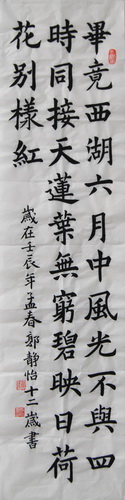 畢竟西湖六月中風光不與四
時同接天蓮葉無窮碧映日荷
花别樣紅
歲在壬辰年孟春郭静怡十二歲書